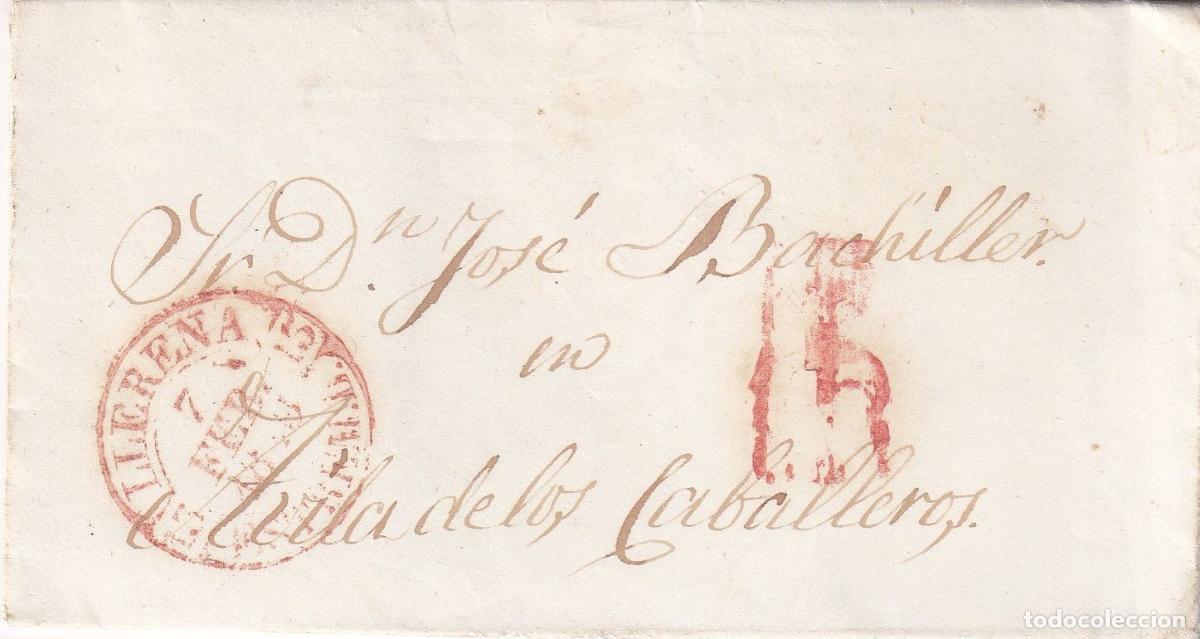 Sr. Dn José Bachiller.
en
Fula de los Caballeros.
LLERENA
7
FEB
15
todocoleccion